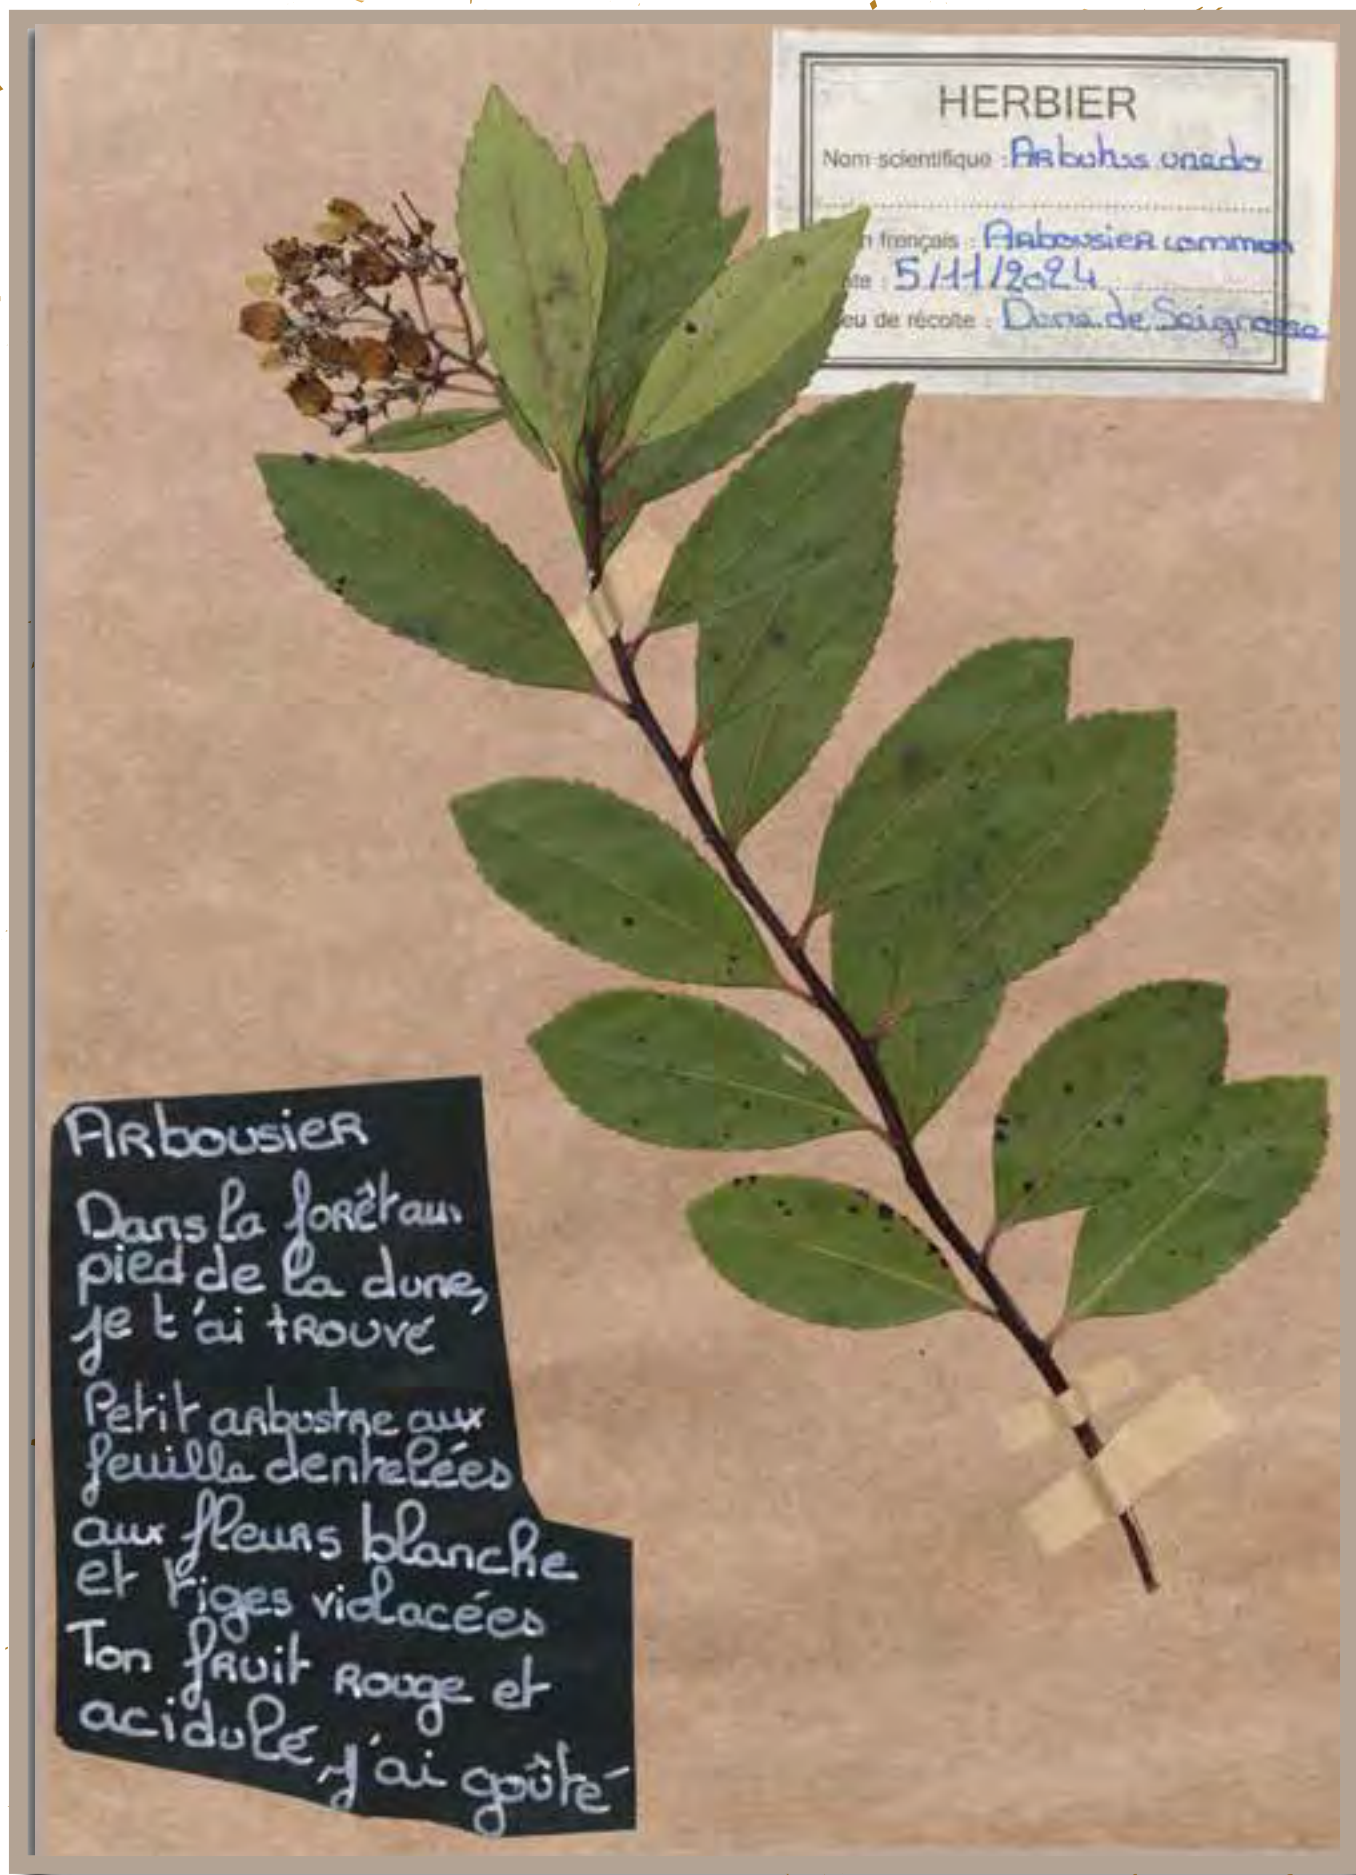 HERBIER
Nom scientifique : Arbutus unedo
n français : Arbousier commun
te : 5/11/2024
eu de récolte : Dune de Seignosse
Arbousier
Dans la forêt au
pied de la dune,
je t'ai trouvé
Petit arbustre aux
feuille dentelées
aux fleurs blanche
et tiges violacées
Ton fruit rouge et
acidulé, j'ai goûté